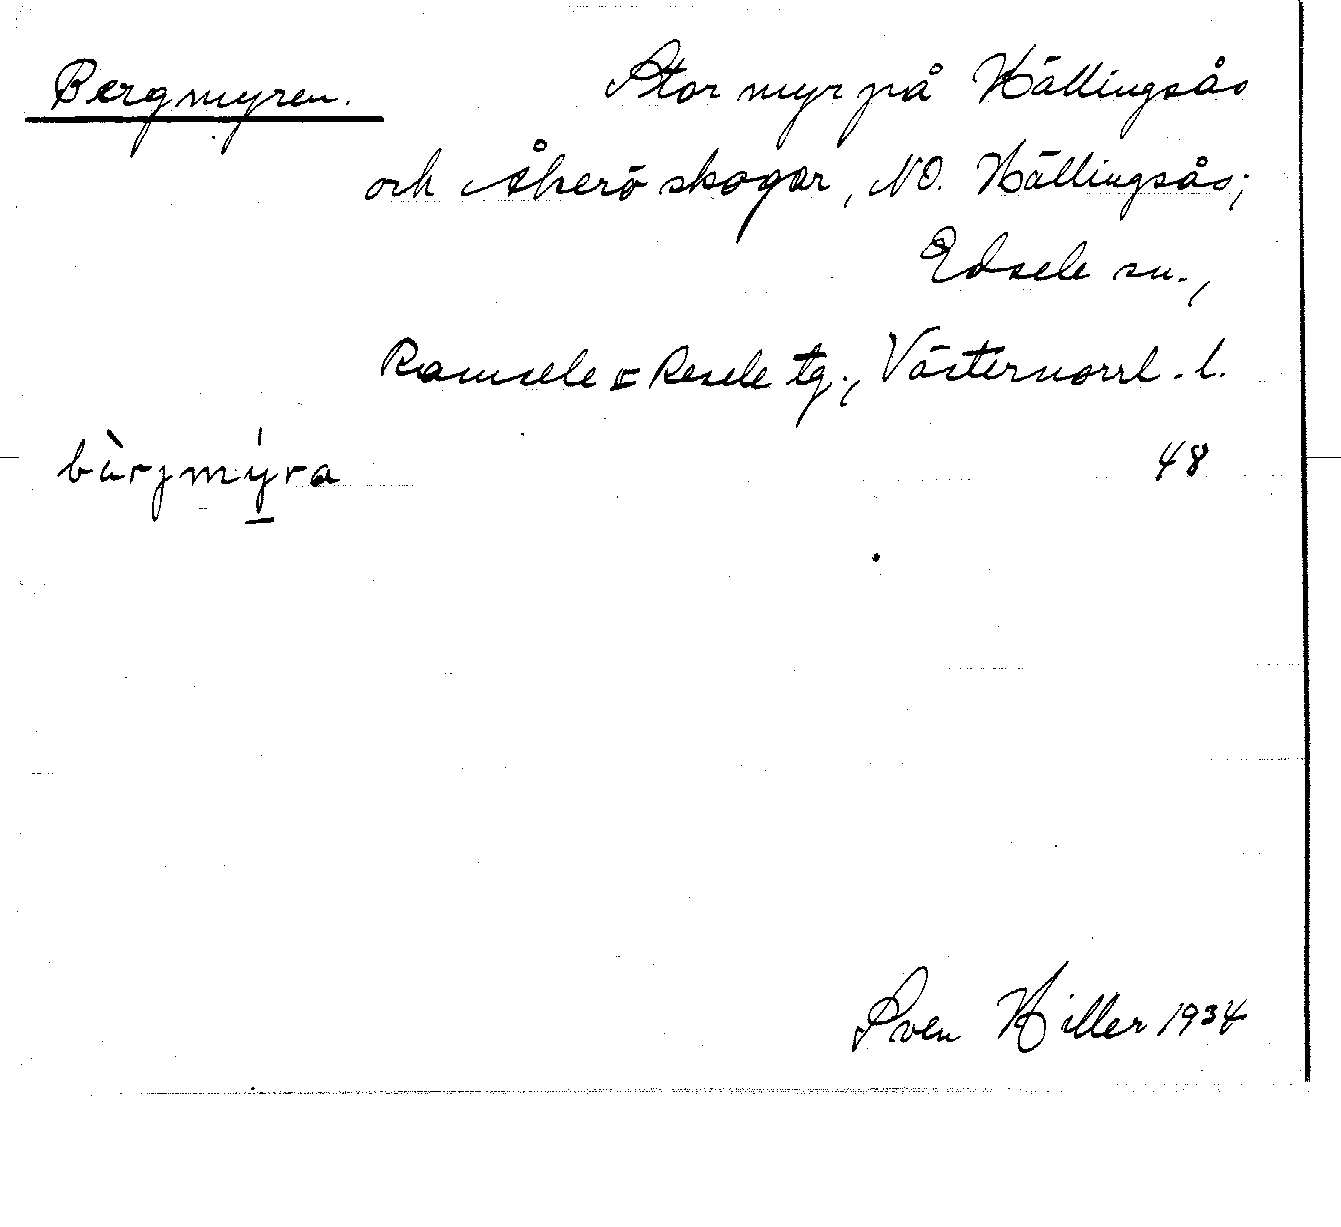 Bergmyren. Stor myr på Hällingsås
och Åkerö skogar, NO. Hällingsås;
Edsele sn.,
Ramsele o Resele tg., Västernorrl. l.
bùrjmýra 48
Sven Hiller 1934